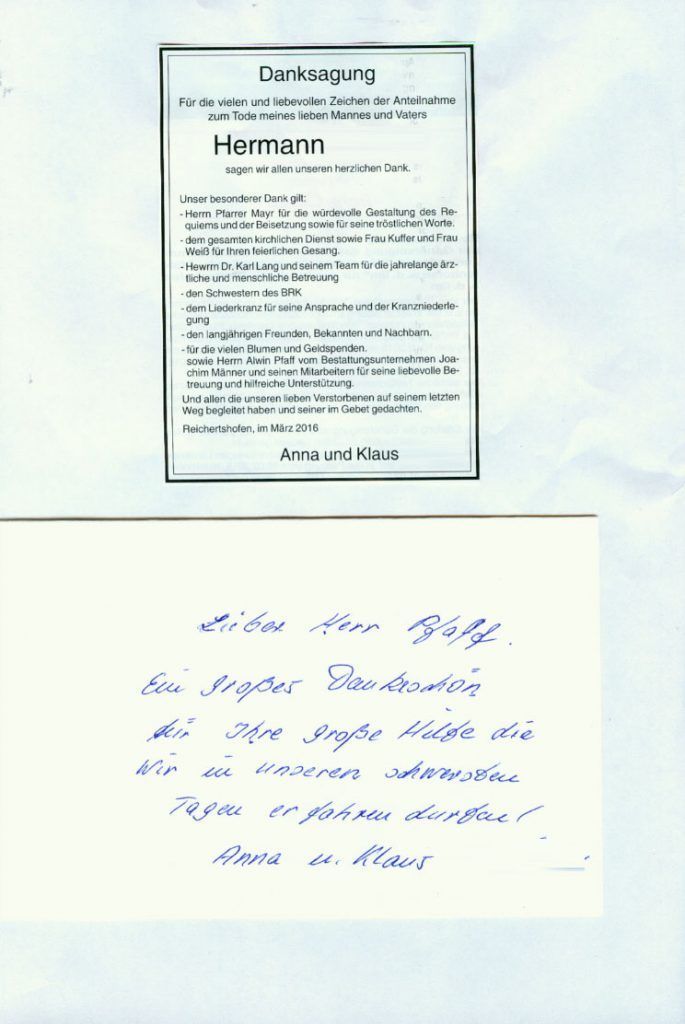 Danksagung
Für die vielen und liebevollen Zeichen der Anteilnahme
zum Tode meines lieben Mannes und Vaters
Hermann
sagen wir allen unseren herzlichen Dank.
Unser besonderer Dank gilt:
- Herrn Pfarrer Mayr für die würdevolle Gestaltung des Re-
quiems und der Beisetzung sowie für seine tröstlichen Worte.
- dem gesamten kirchlichen Dienst sowie Frau Kuffer und Frau
Weiß für Ihren feierlichen Gesang.
- Hewrrn Dr. Karl Lang und seinem Team für die jahrelange ärz-
tliche und menschliche Betreuung
- den Schwestern des BRK
- dem Liederkranz für seine Ansprache und der Kranzniederle-
gung
- den langjährigen Freunden, Bekannten und Nachbarn.
- für die vielen Blumen und Geldspenden.
sowie Herrn Alwin Pfaff vom Bestattungsunternehmen Joa-
chim Männer und seinen Mitarbeitern für seine liebevolle Be-
treuung und hilfreiche Unterstützung.
Und allen die unseren lieben Verstorbenen auf seinem letzten
Weg begleitet haben und seiner im Gebet gedachten.
Reichertshofen, im März 2016
Anna und Klaus
Lieber Herr Pfaff.
Ein großes Dankeschön
für Ihre große Hilfe die
Wir in unseren schwersten
Tagen erfahren durften!
Anna u. Klaus